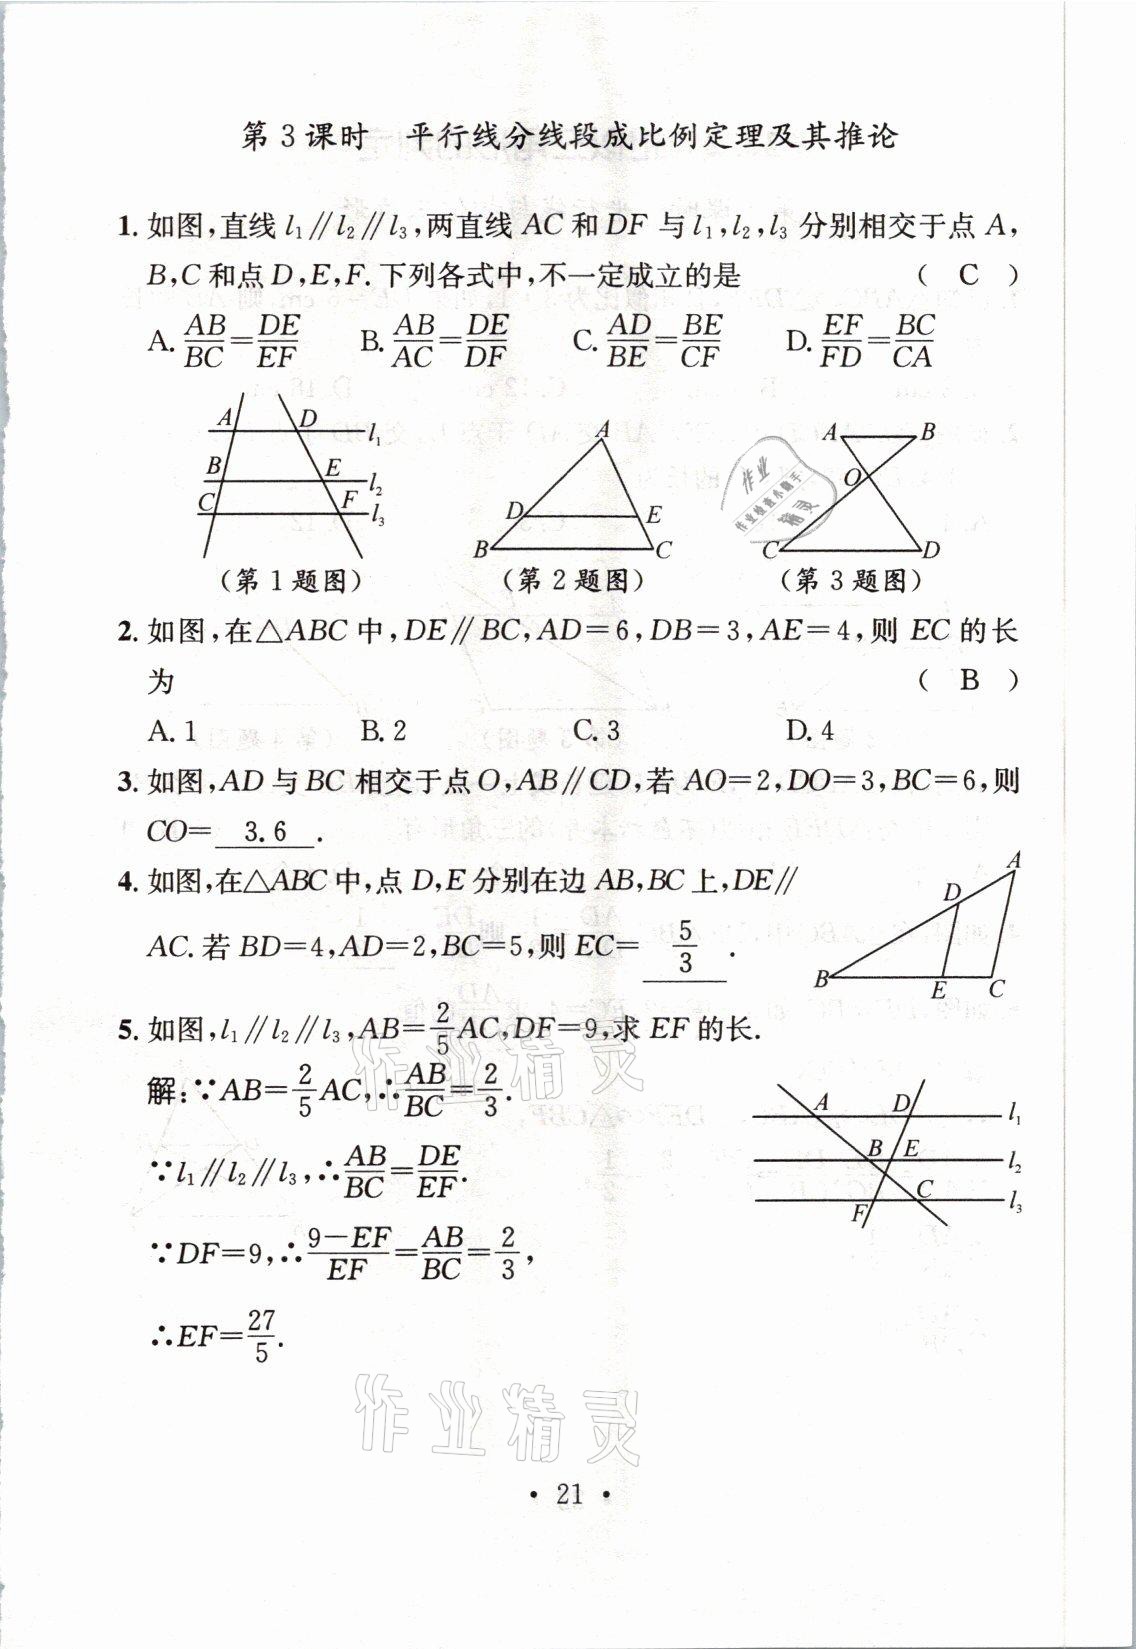 第 3 课时　平行线分线段成比例定理及其推论
1. 如图,直线 l₁∥l₂∥l₃,两直线 AC 和 DF 与 l₁,l₂,l₃ 分别相交于点 A,
B,C 和点 D,E,F. 下列各式中,不一定成立的是　( C )
A. AB/BC=DE/EF　B. AB/AC=DE/DF　C. AD/BE=BE/CF　D. EF/FD=BC/CA
A D l₁
B E l₂
C F l₃
(第 1 题图)
A
D E
B C
(第 2 题图)
A B
O
C D
(第 3 题图)
作业
作业检查小助手
精灵
2. 如图,在△ABC 中,DE∥BC,AD=6,DB=3,AE=4,则 EC 的长
为　( B )
A. 1　B. 2　C. 3　D. 4
3. 如图,AD 与 BC 相交于点 O,AB∥CD,若 AO=2,DO=3,BC=6,则
CO= 3.6 .
4. 如图,在△ABC 中,点 D,E 分别在边 AB,BC 上,DE∥
AC. 若 BD=4,AD=2,BC=5,则 EC= 5/3 .
A
D
B E C
5. 如图,l₁∥l₂∥l₃,AB=2/5 AC,DF=9,求 EF 的长.
解:∵AB=2/5 AC,∴AB/BC=2/3.
∵l₁∥l₂∥l₃,∴AB/BC=DE/EF.
∵DF=9,∴(9-EF)/EF=AB/BC=2/3,
∴EF=27/5.
A D l₁
B E l₂
F C l₃
作业精灵
作业精灵
· 21 ·